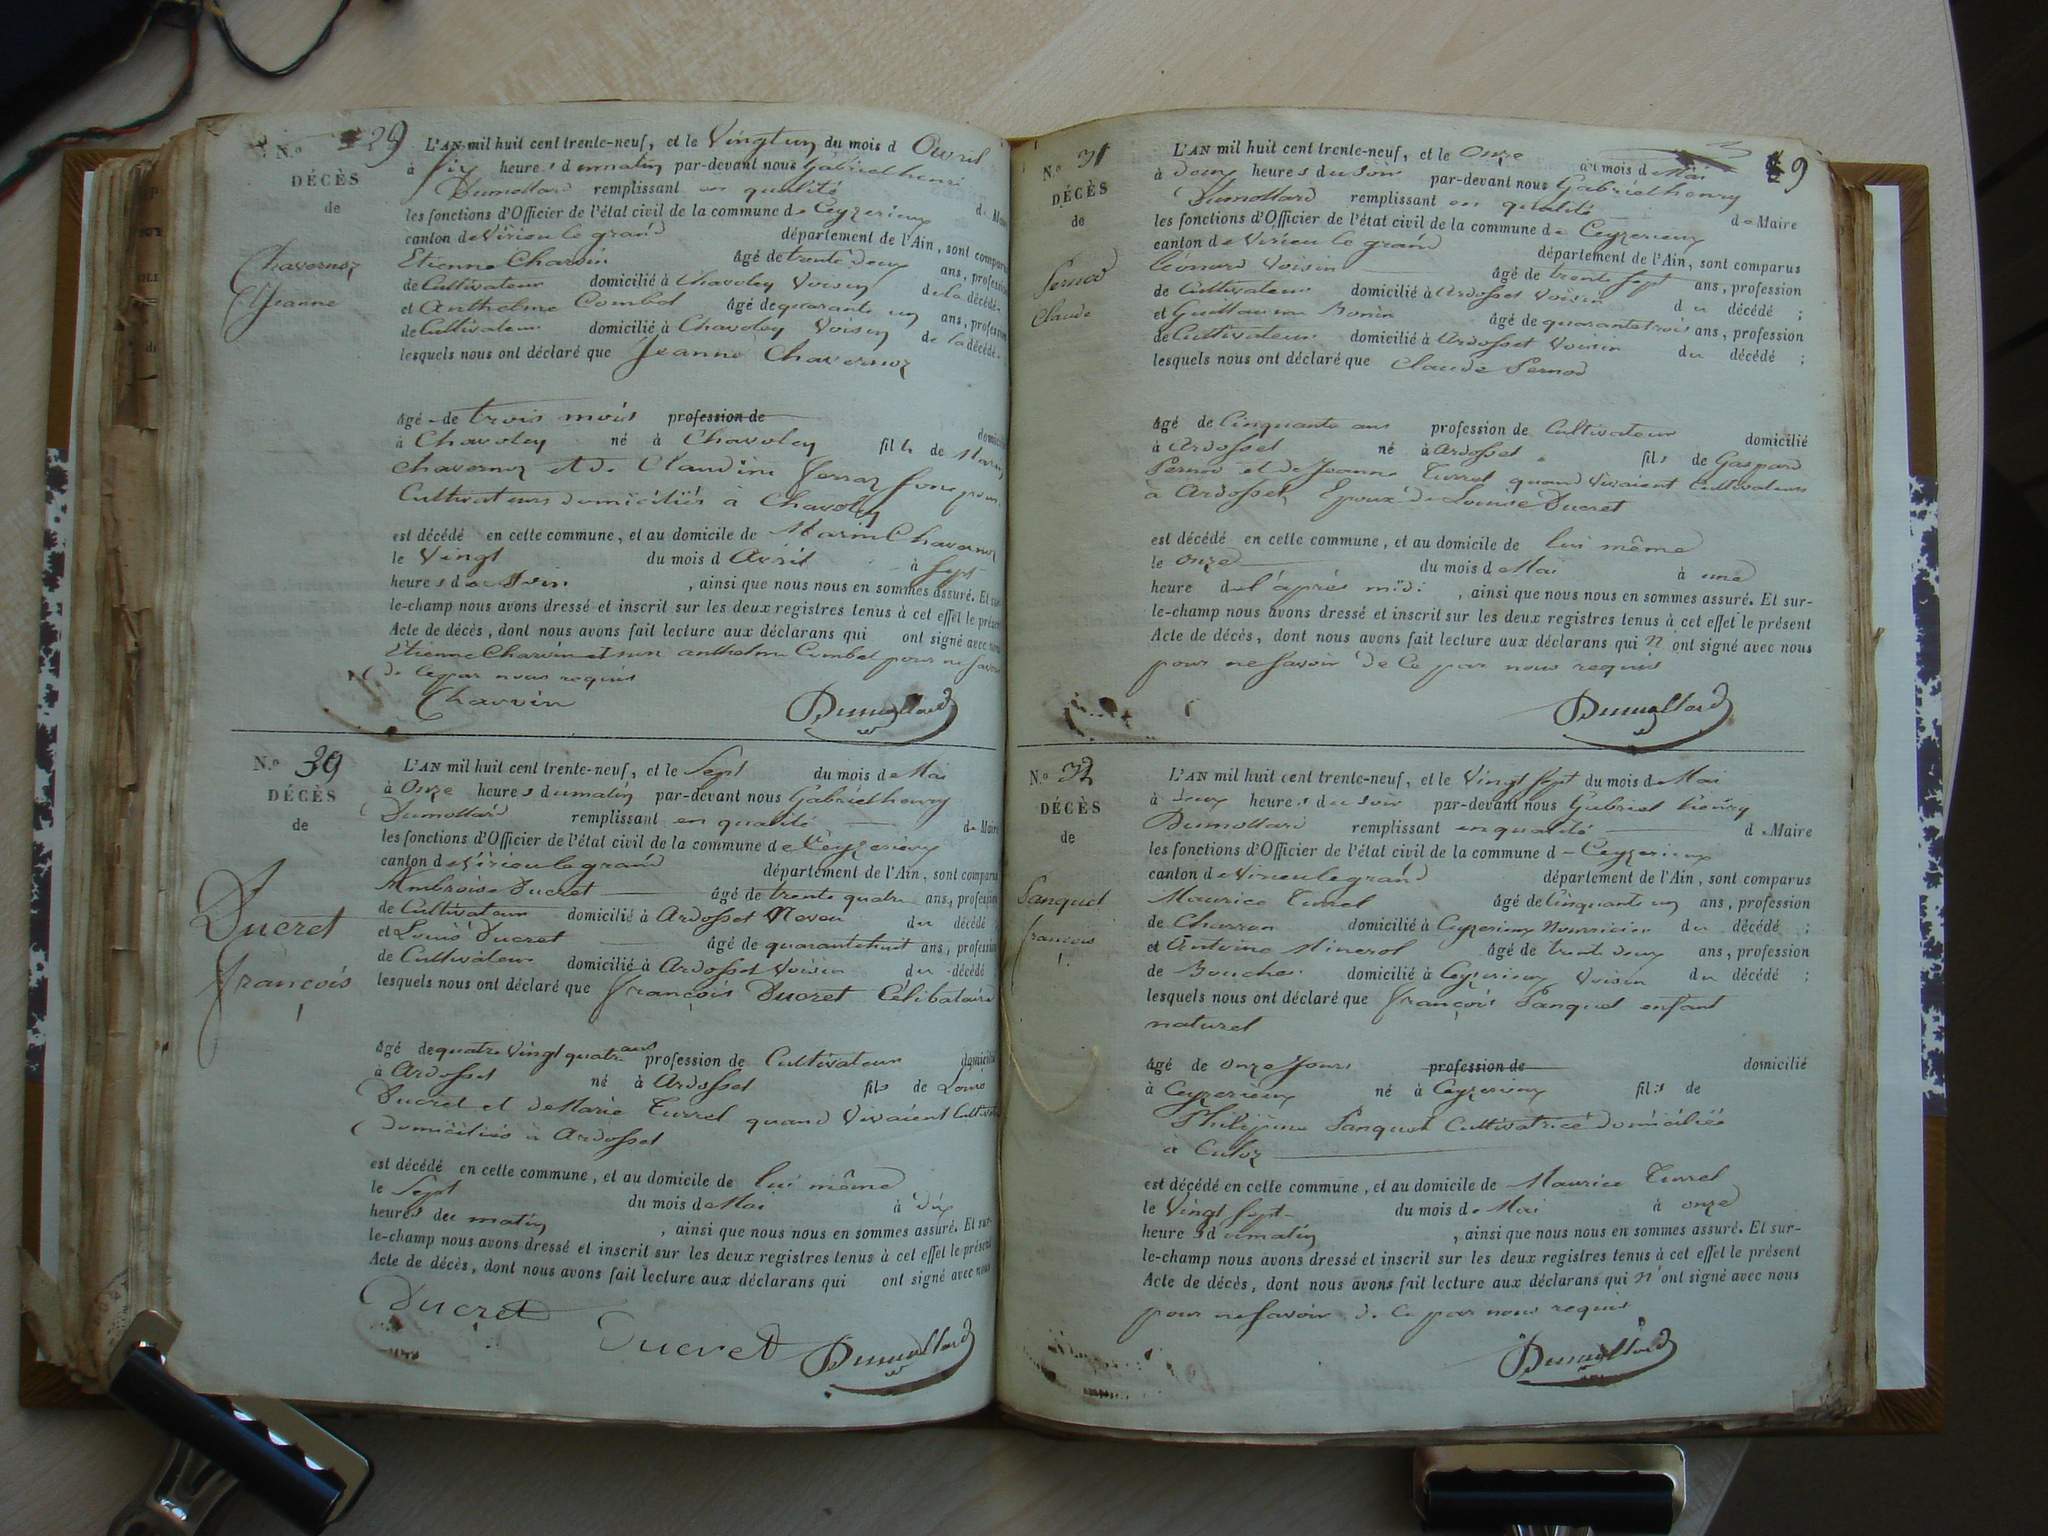 N.º 29
DÉCÈS
de
Chavernoz
Jeanne
L'AN mil huit cent trente-neuf, et le Vingt un du mois d Avril
à six heures du matin par-devant nous Gabriel henri
Dumollard remplissant en qualité de Maire
les fonctions d'Officier de l'état civil de la commune de Ceyzerieux
canton de Virieu le grand département de l'Ain, sont comparus
Etienne Charvin âgé de trente deux ans, profession
de Cultivateur domicilié à Chavoley Voisin de la décédé
et Anthelme Combet âgé de quarante un ans, profession
de Cultivateur domicilié à Chavoley Voisin de la décédé
lesquels nous ont déclaré que Jeanne Chavernoz
âgé de trois mois profession de
à Chavoley né à Chavoley fille de Marin
Chavernoz et de Claudine Ferraz
Cultivateurs domiciliés à Chavoley
est décédé en cette commune, et au domicile de Marin Chavernoz
le Vingt du mois d Avril à sept
heures du soir, ainsi que nous nous en sommes assuré. Et sur-
le-champ nous avons dressé et inscrit sur les deux registres tenus à cet effet le présent
Acte de décès, dont nous avons fait lecture aux déclarans qui ont signé avec nous
Etienne Charvin et non anthelme Combet pour ne savoir
de ce par nous requis
Charvin Dumollard
N.º 30
DÉCÈS
de
Ducret
françois
L'AN mil huit cent trente-neuf, et le Sept du mois de Mai
à Onze heures du matin par-devant nous Gabriel henry
Dumollard remplissant en qualité de Maire
les fonctions d'Officier de l'état civil de la commune de Ceyzerieux
canton de Virieu le grand département de l'Ain, sont comparus
Ambroise Ducret âgé de trente quatre ans, profession
de Cultivateur domicilié à Ardosset Neveu du décédé
et Louis Ducret âgé de quarante huit ans, profession
de Cultivateur domicilié à Ardosset Voisin du décédé
lesquels nous ont déclaré que françois Ducret Célibataire
âgé de quatre Vingt quatre ans profession de Cultivateur domicilié
à Ardosset né à Ardosset fils de Louis
Ducret et de Marie Turrel quand Vivaient Cultivateurs
domiciliés à Ardosset
est décédé en cette commune, et au domicile de lui même
le Sept du mois de Mai à dix
heures du matin, ainsi que nous nous en sommes assuré. Et sur-
le-champ nous avons dressé et inscrit sur les deux registres tenus à cet effet le présent
Acte de décès, dont nous avons fait lecture aux déclarans qui ont signé avec nous
Ducret Ducret Dumollard
9
N.º 31
DÉCÈS
de
Pernod
Claude
L'AN mil huit cent trente-neuf, et le Onze du mois de Mai
à deux heures du soir par-devant nous Gabriel henry
Dumollard remplissant en qualité de Maire
les fonctions d'Officier de l'état civil de la commune de Ceyzerieux
canton de Virieu le grand département de l'Ain, sont comparus
Léonard Voisin âgé de trente sept ans, profession
de Cultivateur domicilié à Ardosset Voisin du décédé ;
et Guillaume Bonin âgé de quarante trois ans, profession
de Cultivateur domicilié à Ardosset Voisin du décédé ;
lesquels nous ont déclaré que Claude Pernod
âgé de Cinquante ans profession de Cultivateur domicilié
à Ardosset né à Ardosset fils de Gaspard
Pernod et de Jeanne Turrel quand Vivaient Cultivateurs
à Ardosset, Epoux de Louise Ducret
est décédé en cette commune, et au domicile de lui même
le onze du mois de Mai à une
heure de l'après midi, ainsi que nous nous en sommes assuré. Et sur-
le-champ nous avons dressé et inscrit sur les deux registres tenus à cet effet le présent
Acte de décès, dont nous avons fait lecture aux déclarans qui n'ont signé avec nous
pour ne savoir de ce par nous requis
Dumollard
N.º 32
DÉCÈS
de
Panquet
francois
L'AN mil huit cent trente-neuf, et le Vingt sept du mois de Mai
à deux heures du soir par-devant nous Gabriel henry
Dumollard remplissant en qualité de Maire
les fonctions d'Officier de l'état civil de la commune de Ceyzerieux
canton de Virieu le grand département de l'Ain, sont comparus
Maurice Turrel âgé de Cinquante un ans, profession
de Charron domicilié à Ceyzerieux Nourricier du décédé ;
et Antoine Minerol âgé de trente deux ans, profession
de Boucher domicilié à Ceyzerieux Voisin du décédé ;
lesquels nous ont déclaré que françois Panquet enfant
naturel
âgé de onze Jours profession de domicilié
à Ceyzerieux né à Ceyzerieux fils de
Philippine Panquet Cultivatrice domiciliée
à Culoz
est décédé en cette commune, et au domicile de Maurice Turrel
le Vingt sept du mois de Mai à onze
heures du matin, ainsi que nous nous en sommes assuré. Et sur-
le-champ nous avons dressé et inscrit sur les deux registres tenus à cet effet le présent
Acte de décès, dont nous avons fait lecture aux déclarans qui n'ont signé avec nous
pour ne savoir de ce par nous requis
Dumollard